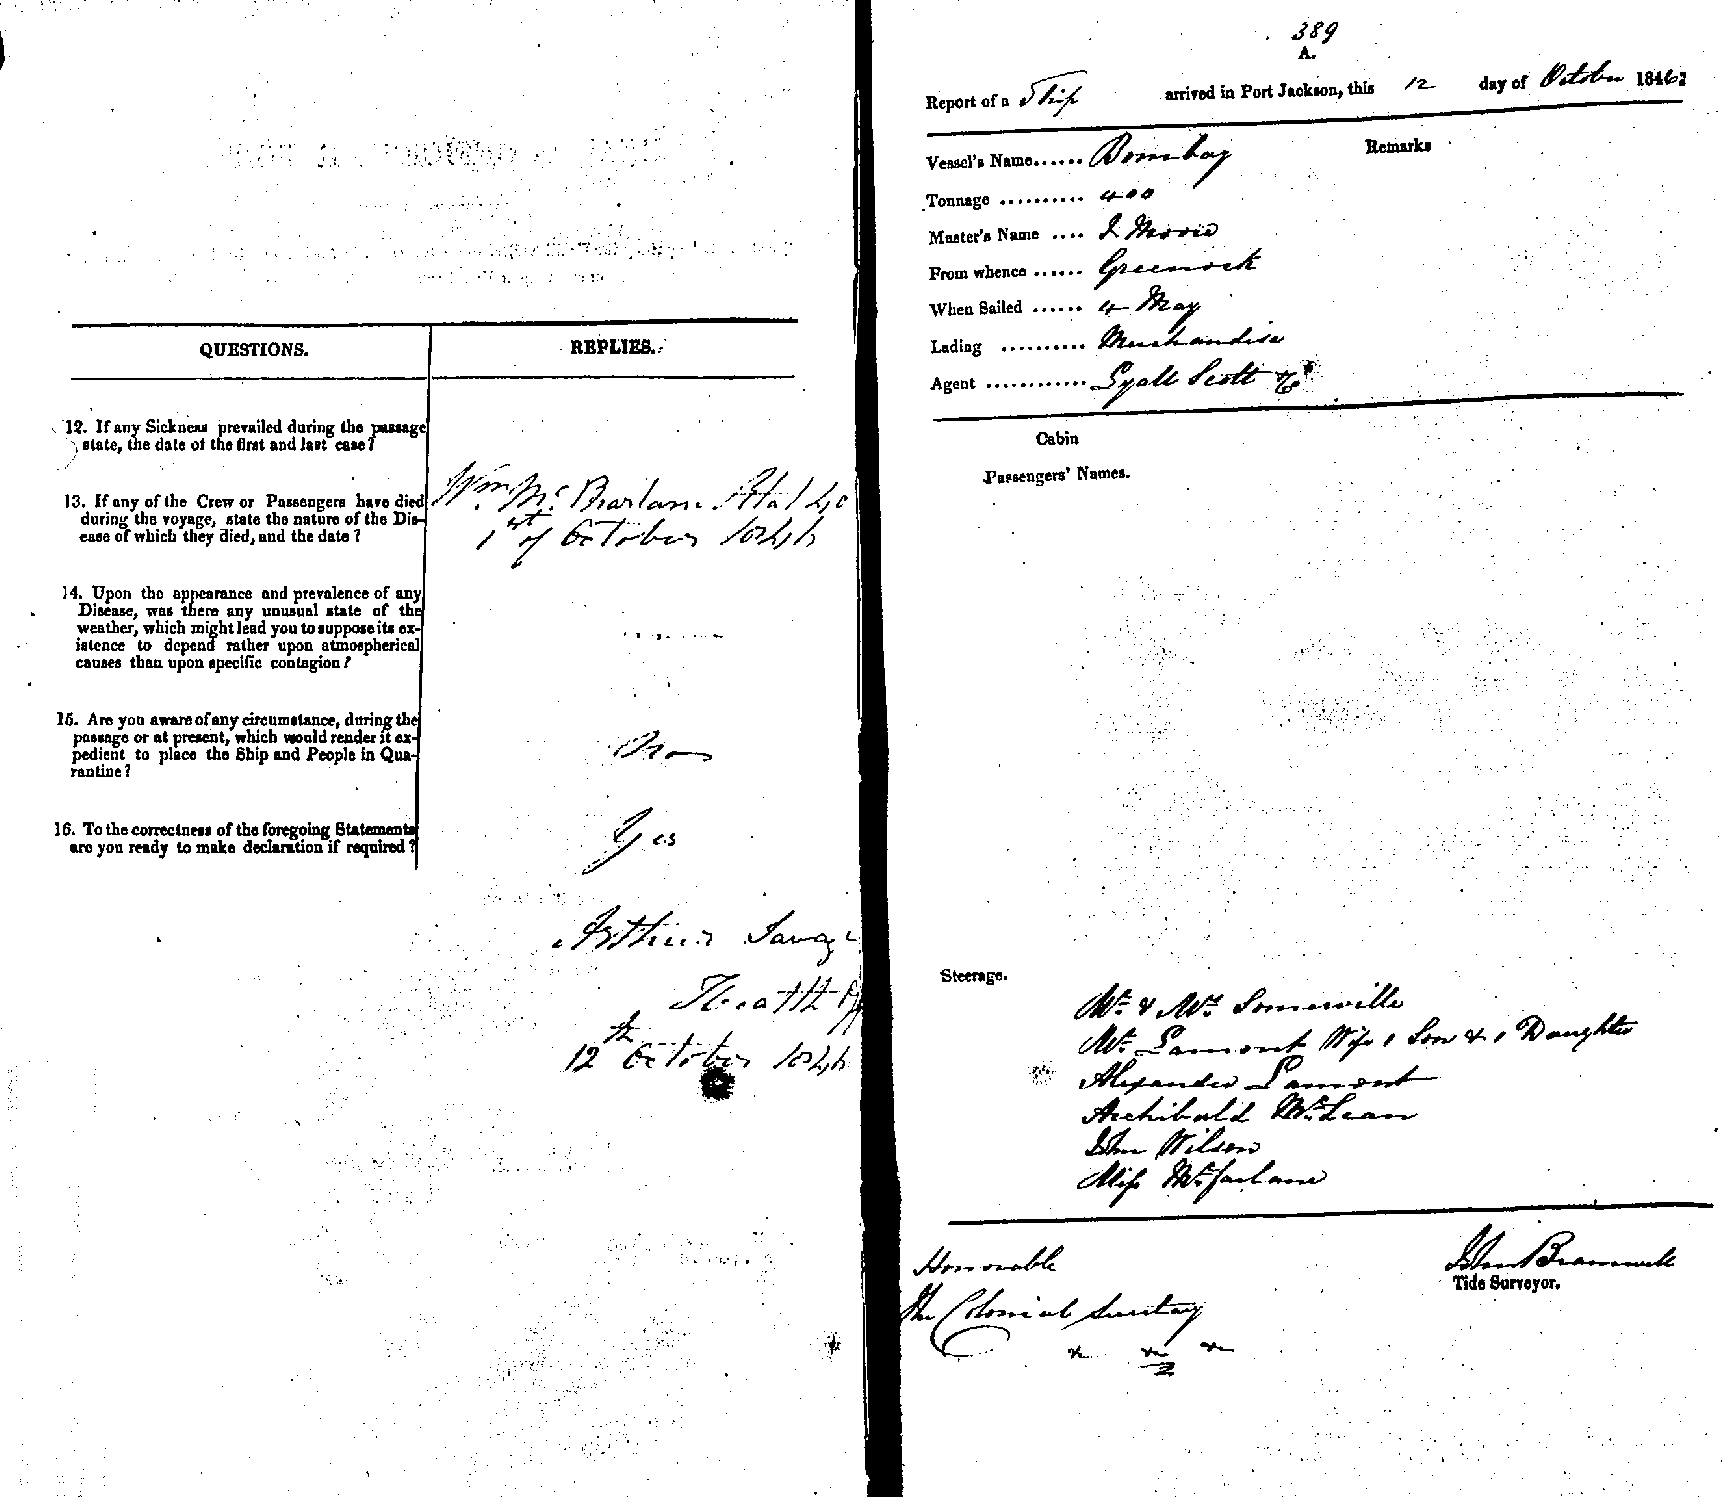 QUESTIONS. REPLIES.
12. If any Sickness prevailed during the passage
state, the date of the first and last case?
13. If any of the Crew or Passengers have died
during the voyage, state the nature of the Dis-
ease of which they died, and the date?
Wm. Mc
1st of October 1846
14. Upon the appearance and prevalence of any
Disease, was there any unusual state of the
weather, which might lead you to suppose its ex-
istence to depend rather upon atmospherical
causes than upon specific contagion?
15. Are you aware of any circumstance, during the
passage or at present, which would render it ex-
pedient to place the Ship and People in Qua-
rantine?
16. To the correctness of the foregoing Statements
are you ready to make declaration if required?
Yes
Arthur Savage
Health
12th October 1846
389
A.
Report of a Ship arrived in Port Jackson, this 12 day of October 1846:
Remarks
Vessel's Name...... Bombay
Tonnage .......... 400
Master's Name .... J Moore
From whence ...... Greenock
When Sailed ...... 4 May
Lading .......... Merchandise
Agent ............ Lyall Scott & Co
Cabin
Passengers' Names.
Steerage.
Mr & Mrs Somerville
Mr Lamont Wife 1 Son & 1 Daughter
Alexander Lamont
Archibald McLean
John Wilson
Miss McFarlane
John Bramwell
Tide Surveyor.
Honorable
The Colonial Secretary